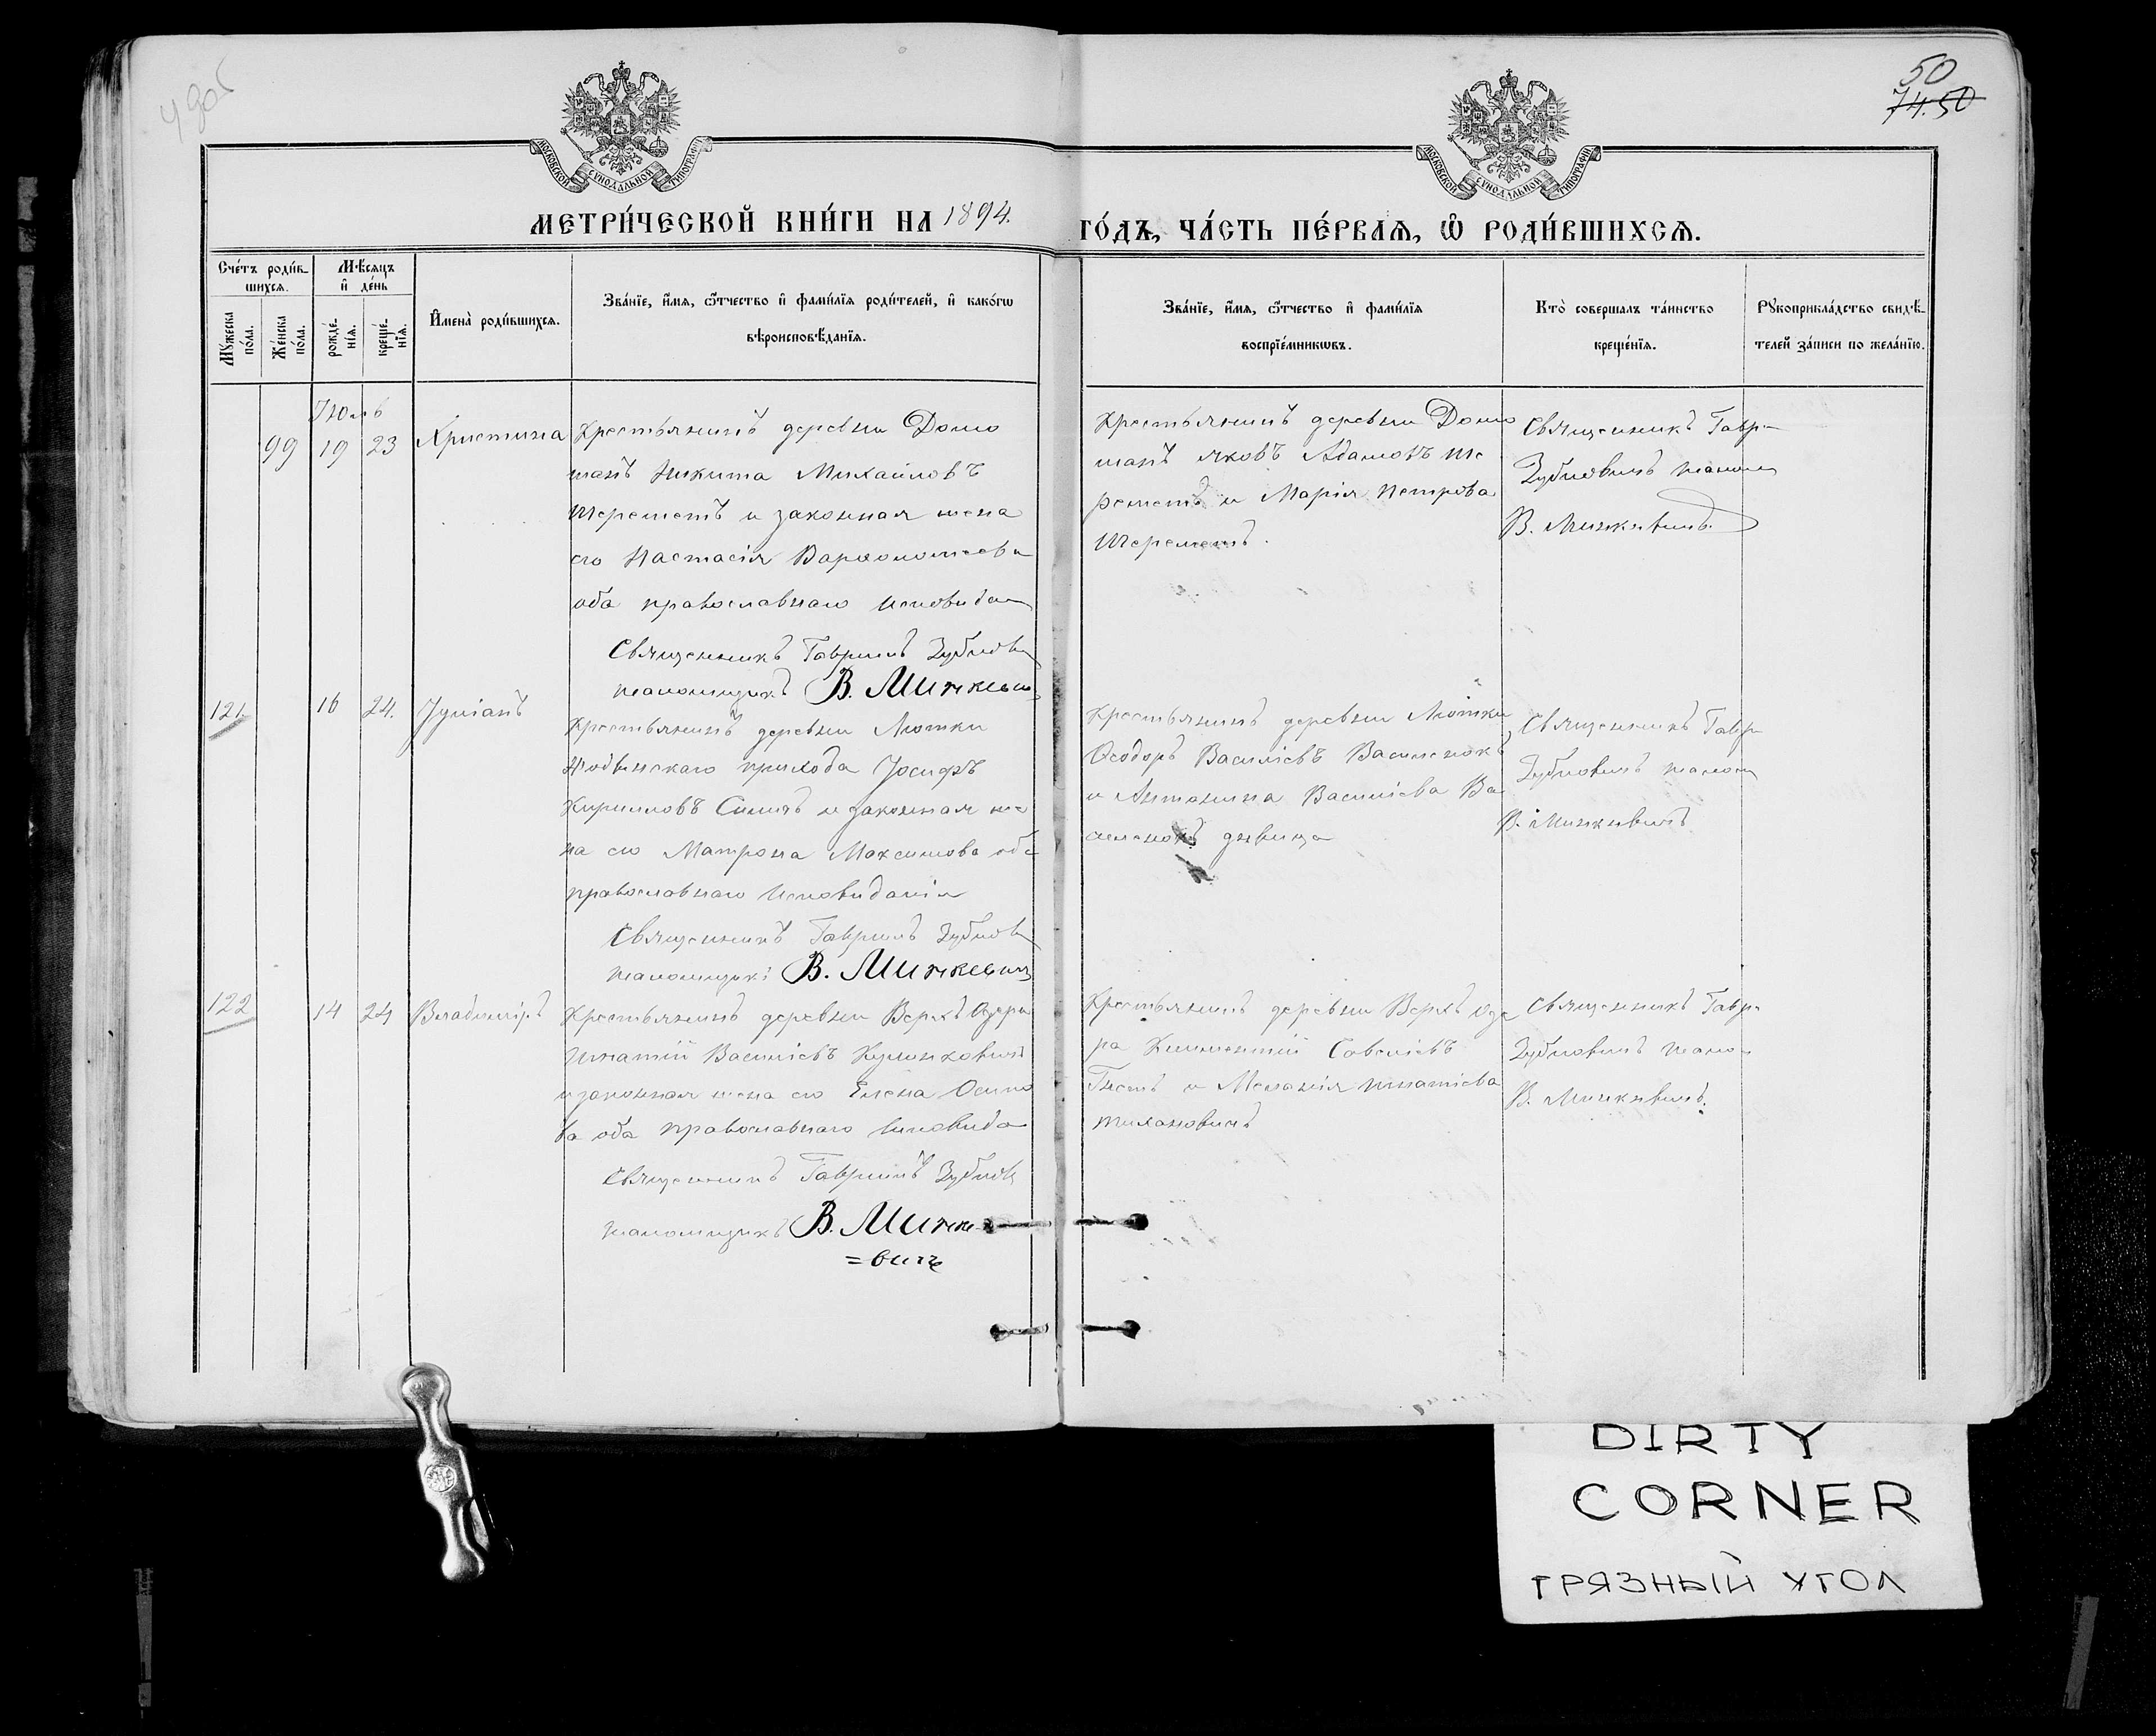 50
74.50
МОСКОВСКОЙ СѴНОДАЛЬНОЙ ТИПОГРАФІИ
МОСКОВСКОЙ СѴНОДАЛЬНОЙ ТИПОГРАФІИ
МЕТРИ́ЧЕСКОЙ КНИ́ГИ НА 1894. ГО́ДЪ, ЧА́СТЬ ПЕ́РВАѦ, Ѡ҆ РОДИ́ВШИХСѦ.
Сче́тъ роди́в-
шихсѧ.
Мѣ́сѧцъ
и҆ де́нь
Мꙋ́жеска
по́ла.
Же́нска
по́ла.
рожде́-
нїѧ.
креще́-
нїѧ.
И҆мена̀ роди́вшихсѧ.
Зва́нїе, и҆́мѧ, ѻ҆́тчество и҆ фамѝлїѧ роди́телей, и҆ како́гѡ
вѣроисповѣ́данїѧ.
Зва́нїе, и҆́мѧ, ѻ҆́тчество и҆ фами́лїѧ
воспрїе́мникѡвъ.
Кто̀ совершалъ та́инство
креще́нїѧ.
Рꙋкоприкла́дство свидѣ́-
телей за́писи по жела́нїю.
Июль
99 19 23 Христина
Крестьянинъ деревни Домо
шанъ Никита Михайловъ
Шереметъ и законная жена
его Настасія Варѳоломеева
оба православнаго исповѣда
Священникъ Гавріилъ Зубков
псаломщикъ В. Мичкевич
Крестьянинъ деревни Домо
шанъ Яковъ Адамовъ Ше
реметъ и Марія Петрова
Шереметъ.
Священникъ Гавр
псалом
В. Мичкевичъ
121 16 24. Іуліанъ
Крестьянинъ деревни Лютки
прихода Іосифъ
Кирилловъ и законная же
на его Матрона Максимова оба
православнаго исповѣданія
Священникъ Гавріилъ
псаломщикъ В. Мичкевичъ
Крестьянинъ деревни Лютки
Ѳеодоръ Василіевъ Василенокъ
и Антонина Василіева Ва
силенокъ дѣвица
Священникъ Гавр
псалом
В. Мичкевичъ
122 14 24 Владиміръ
Крестьянинъ деревни Верхъ Озера
Игнатій Василіевъ
и законная жена его Елена Осипо
ва оба православнаго исповѣда
Священникъ Гавріилъ
псаломщикъ В. Мичке
=вичъ
Крестьянинъ деревни Верхъ Озе
ра Климентій Савеліевъ
и Меланія Игнатіева
Священникъ Гавр
псало
В. Мичкевичъ.
DIRTY
CORNER
ГРЯЗНЫЙ УГОЛ